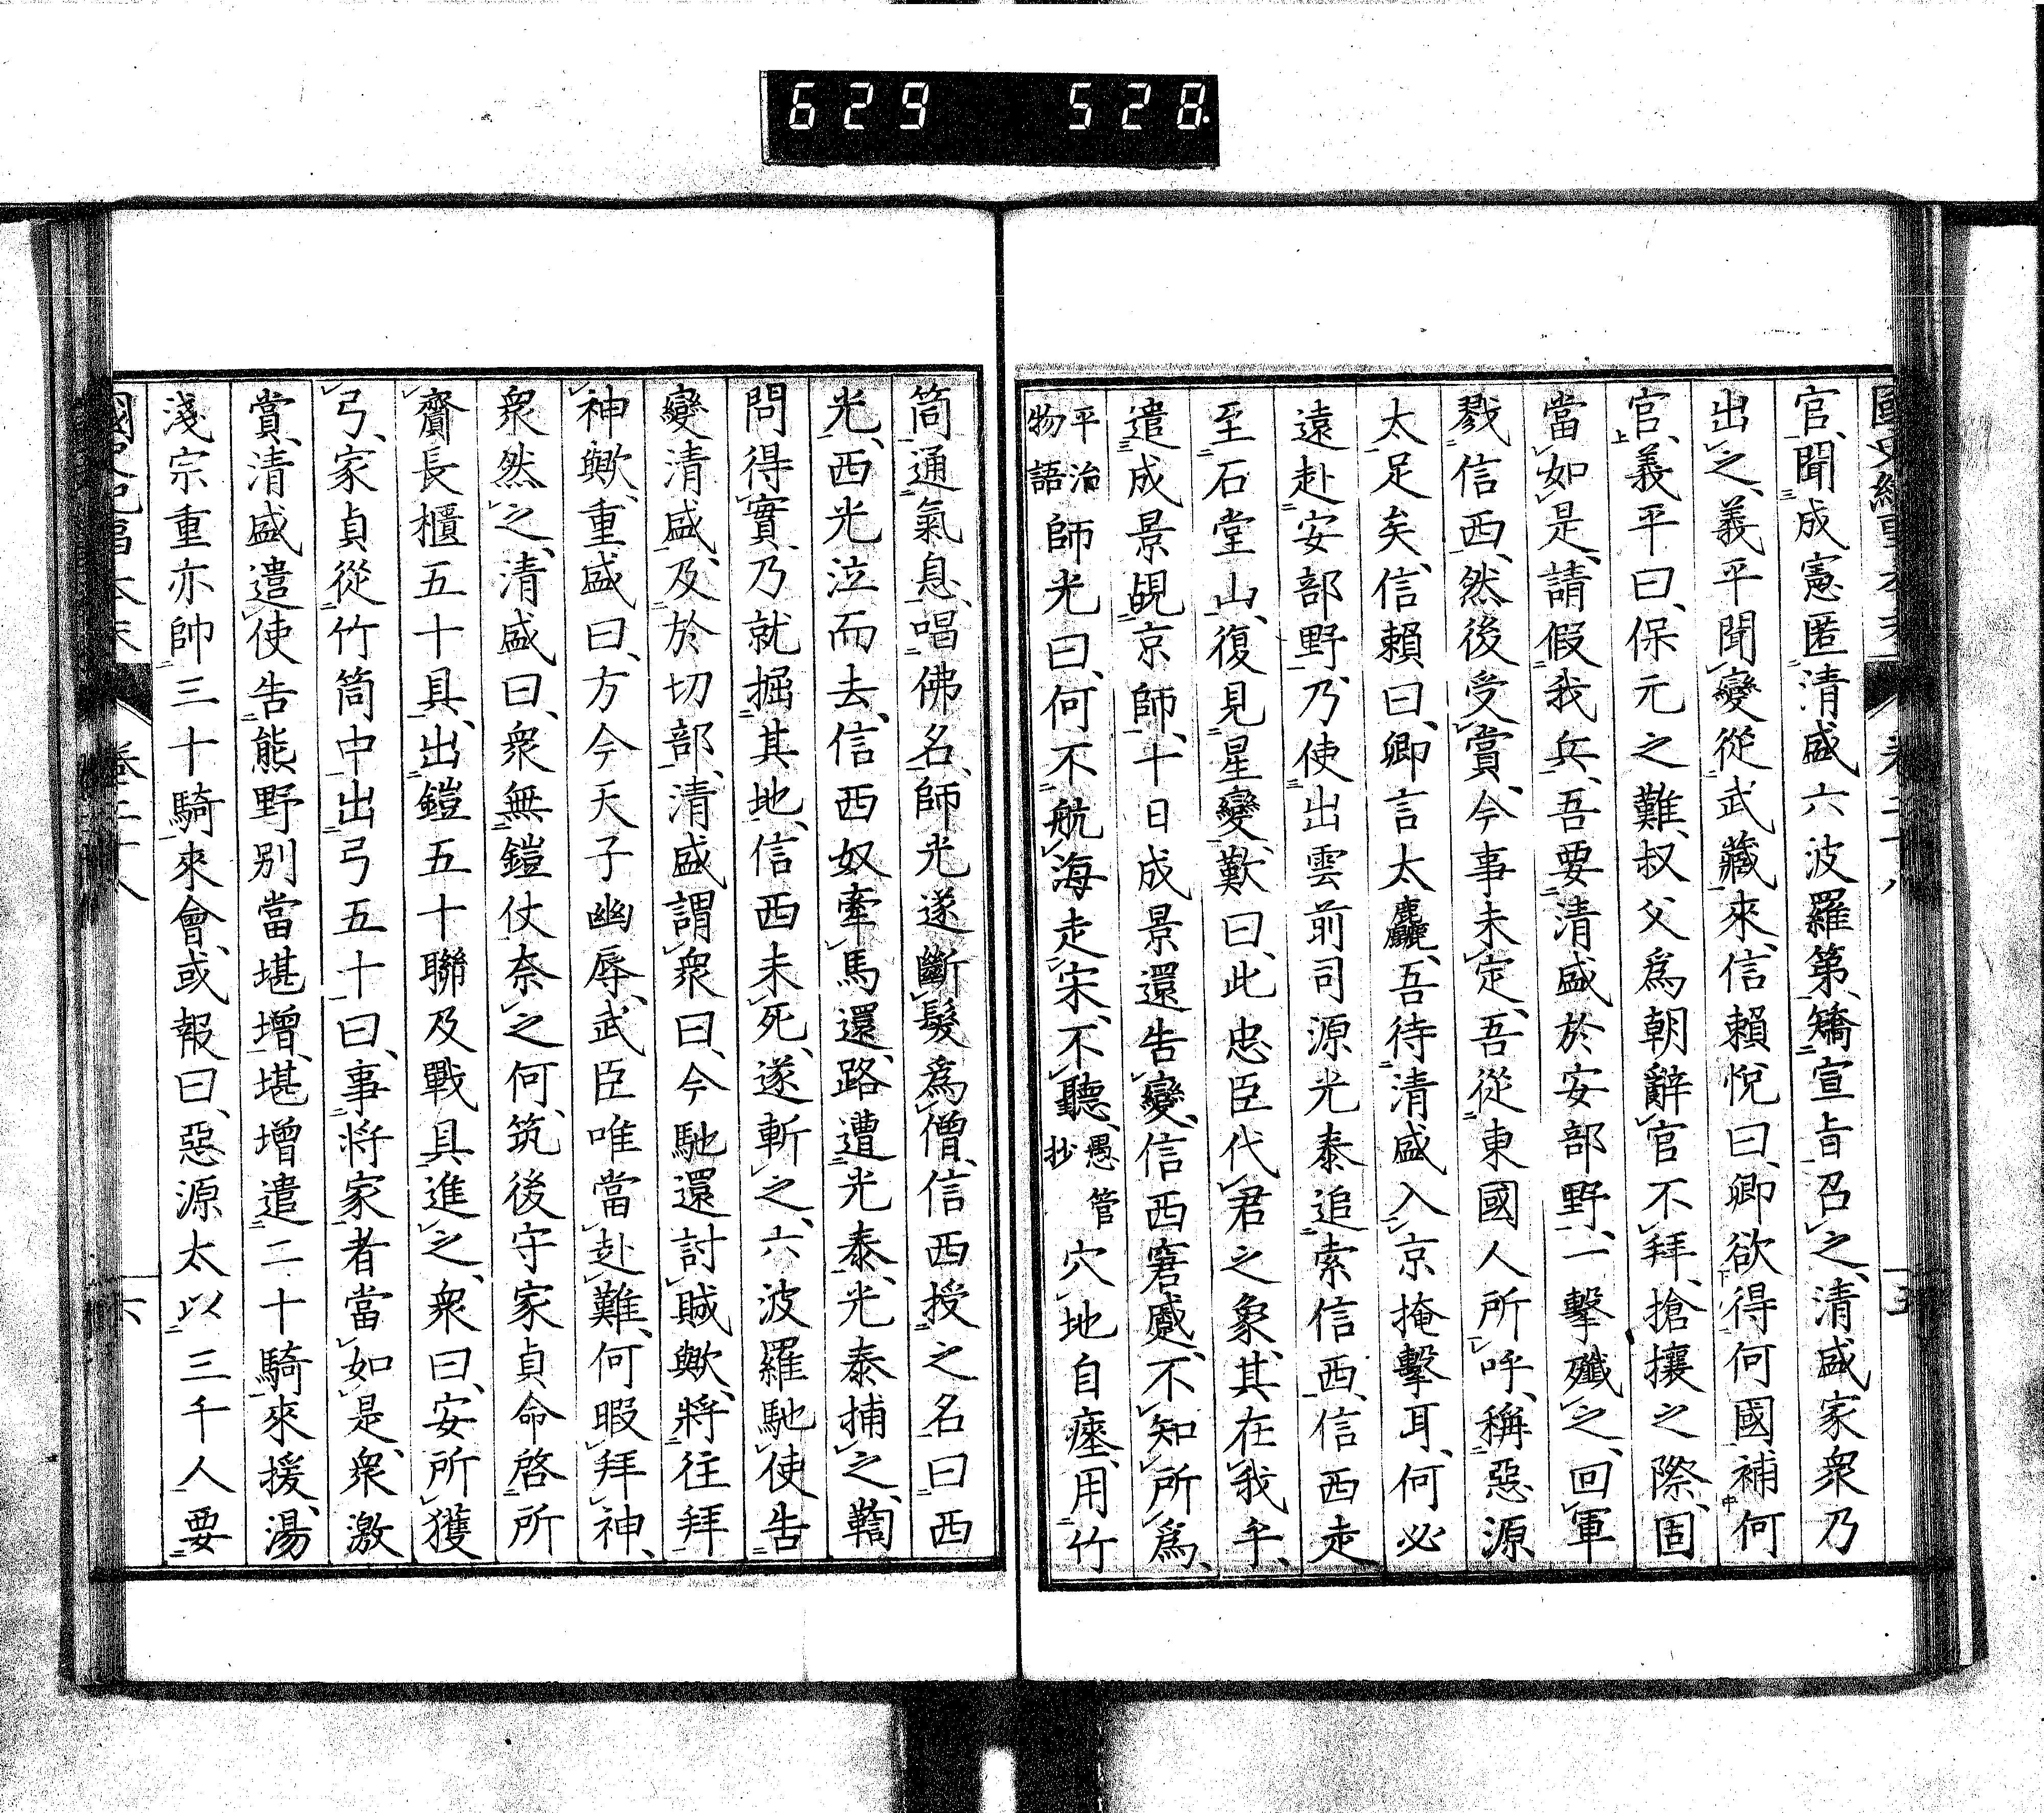 629 528
官、聞成憲匿清盛六波羅第、矯宣旨召之、清盛家衆乃
出之、義平聞變從武藏來、信賴悅曰、卿欲得何國補何
官、義平曰、保元之難、叔父爲朝辭官不拜、搶攘之際、固
當如是、請假我兵、吾要清盛於安部野、一擊殲之、回軍
戮信西、然後受賞、今事未定、吾從東國人所呼、稱惡源
太足矣、信賴曰、卿言太麤、吾待清盛入京掩擊耳、何必
遠赴安部野、乃使出雲前司源光泰追索信西、信西走
至石堂山、復見星變、歎曰、此忠臣代君之象、其在我乎、
遣成景覘京師、十日成景還告變、信西窘蹙、不知所爲、
平治物語 師光曰、何不航海走宋、不聽、愚管抄 穴地自瘞、用竹
筒通氣息、唱佛名、師光遂斷髮爲僧、信西授之名曰西
光、西光泣而去、信西奴牽馬還、路遭光泰、光泰捕之、鞫
問得實、乃就掘其地、信西未死、遂斬之、六波羅馳使告
變清盛、及於切部、清盛謂衆曰、今馳還討賊歟、將往拜
神歟、重盛曰、方今天子幽辱、武臣唯當赴難、何暇拜神、
衆然之、清盛曰、衆無鎧仗奈之何、筑後守家貞命啓所
齎長櫃五十具、出鎧五十聯及戰具進之、衆曰、安所獲
弓、家貞從竹筒中出弓五十曰、事將家者當如是、衆激
賞、清盛遣使告熊野別當堪增、堪增遣二十騎來援、湯
淺宗重亦帥三十騎來會、或報曰、惡源太以三千人要